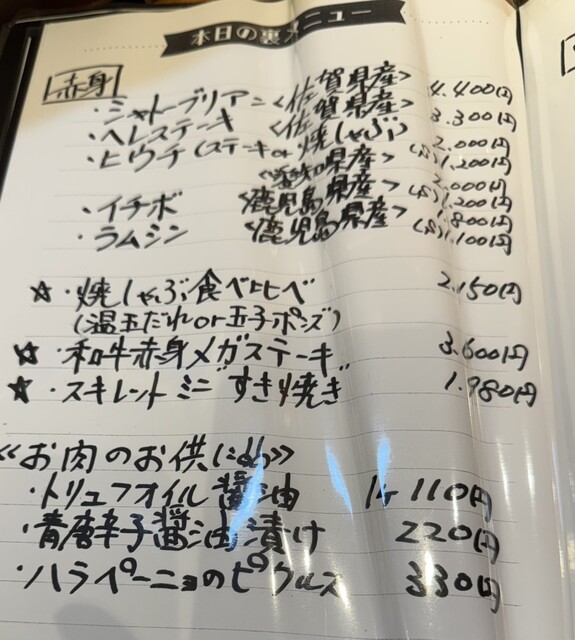 本日の裏メニュー
赤身
・シャトーブリアン <佐賀県産> 4.400円
・ヘレステーキ <佐賀県産> 3.300円
・ヒウチ (ステーキor焼しゃぶ) 2.000円
<愛知県産> (S)1.200円
・イチボ <鹿児島県産> 2.000円 (S)1.200円
・ラムシン <鹿児島県産> 1.800円 (S)1.100円
☆・焼しゃぶ食べ比べ 2.150円
(温玉だれor玉子ポンズ)
☆・和牛赤身メガステーキ 3.600円
☆・スキレットミニ"すき焼き" 1.980円
≪お肉のお供に≫
・トリュフオイル醤油 1ケ110円
・青唐辛子醤油漬け 220円
・ハラペーニョのピクルス 330円